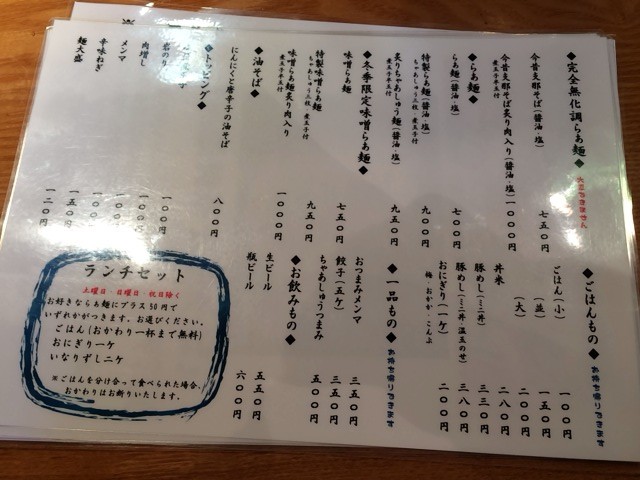 ◆完全無化調らぁ麺◆ 大盛できません
今昔支那そば(醤油・塩) 七五〇円
今昔支那そば炙り肉入り(醤油・塩) 一〇〇〇円
煮玉子半玉付
◆らぁ麺◆
らぁ麺(醤油・塩) 七〇〇円
特製らぁ麺(醤油・塩) 九〇〇円
ちゃあしゅう三枚・煮玉子付
炙りちゃあしゅう麺(醤油・塩) 九五〇円
煮玉子半玉付
◆冬季限定味噌らぁ麺◆
味噌らぁ麺 七五〇円
特製味噌らぁ麺 九五〇円
ちゃあしゅう三枚・煮玉子付
味噌らぁ麺炙り肉入り 一〇〇〇円
煮玉子半玉付
◆油そば◆
にんにくと唐辛子の油そば 八〇〇円
◆トッピング◆
岩のり
肉増し
メンマ
辛味ねぎ 一五〇円
麺大盛 一二〇円
◆ごはんもの◆ お持ち帰りできます
ごはん(小) 一〇〇円
(並) 一五〇円
(大) 二〇〇円
丼米 二八〇円
豚めし(ミニ丼) 三三〇円
豚めし(ミニ丼・温玉のせ) 三八〇円
おにぎり(一ケ) 二〇〇円
梅 おかか こんぶ
◆一品もの◆ お持ち帰りできます
おつまみメンマ 三五〇円
餃子(五ケ) 三五〇円
ちゃあしゅうつまみ 五〇〇円
◆お飲みもの◆
生ビール 五五〇円
瓶ビール 六〇〇円
ランチセット
土曜日・日曜日・祝日除く
お好きならぁ麺にプラス50円で
いずれかがつきます。お選びください。
ごはん(おかわり一杯まで無料)
おにぎり一ケ
いなりずし二ケ
※ごはんを分け合って食べられた場合、
おかわりはお断りいたします。